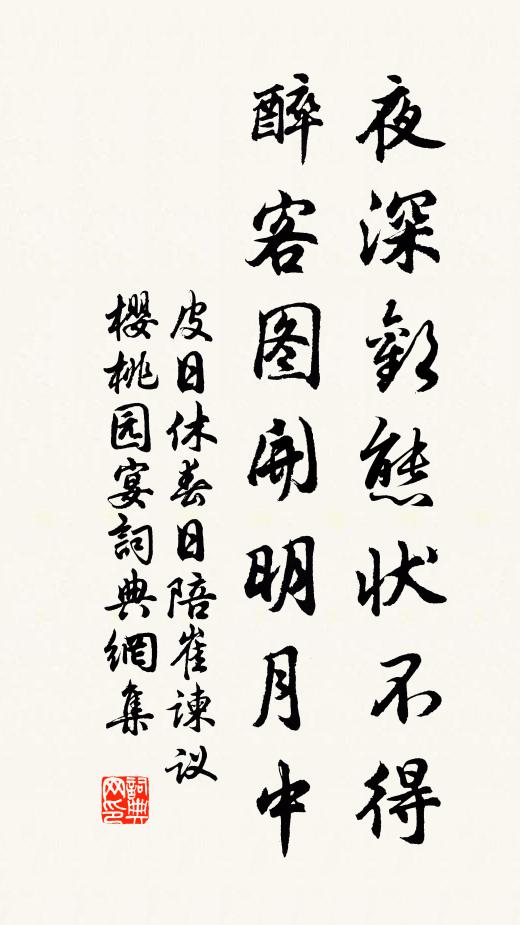 夜深歡態狀不得
醉客图開明月中
皮日休春日陪崔諫议
櫻桃园宴詞典網集
詞典
网印